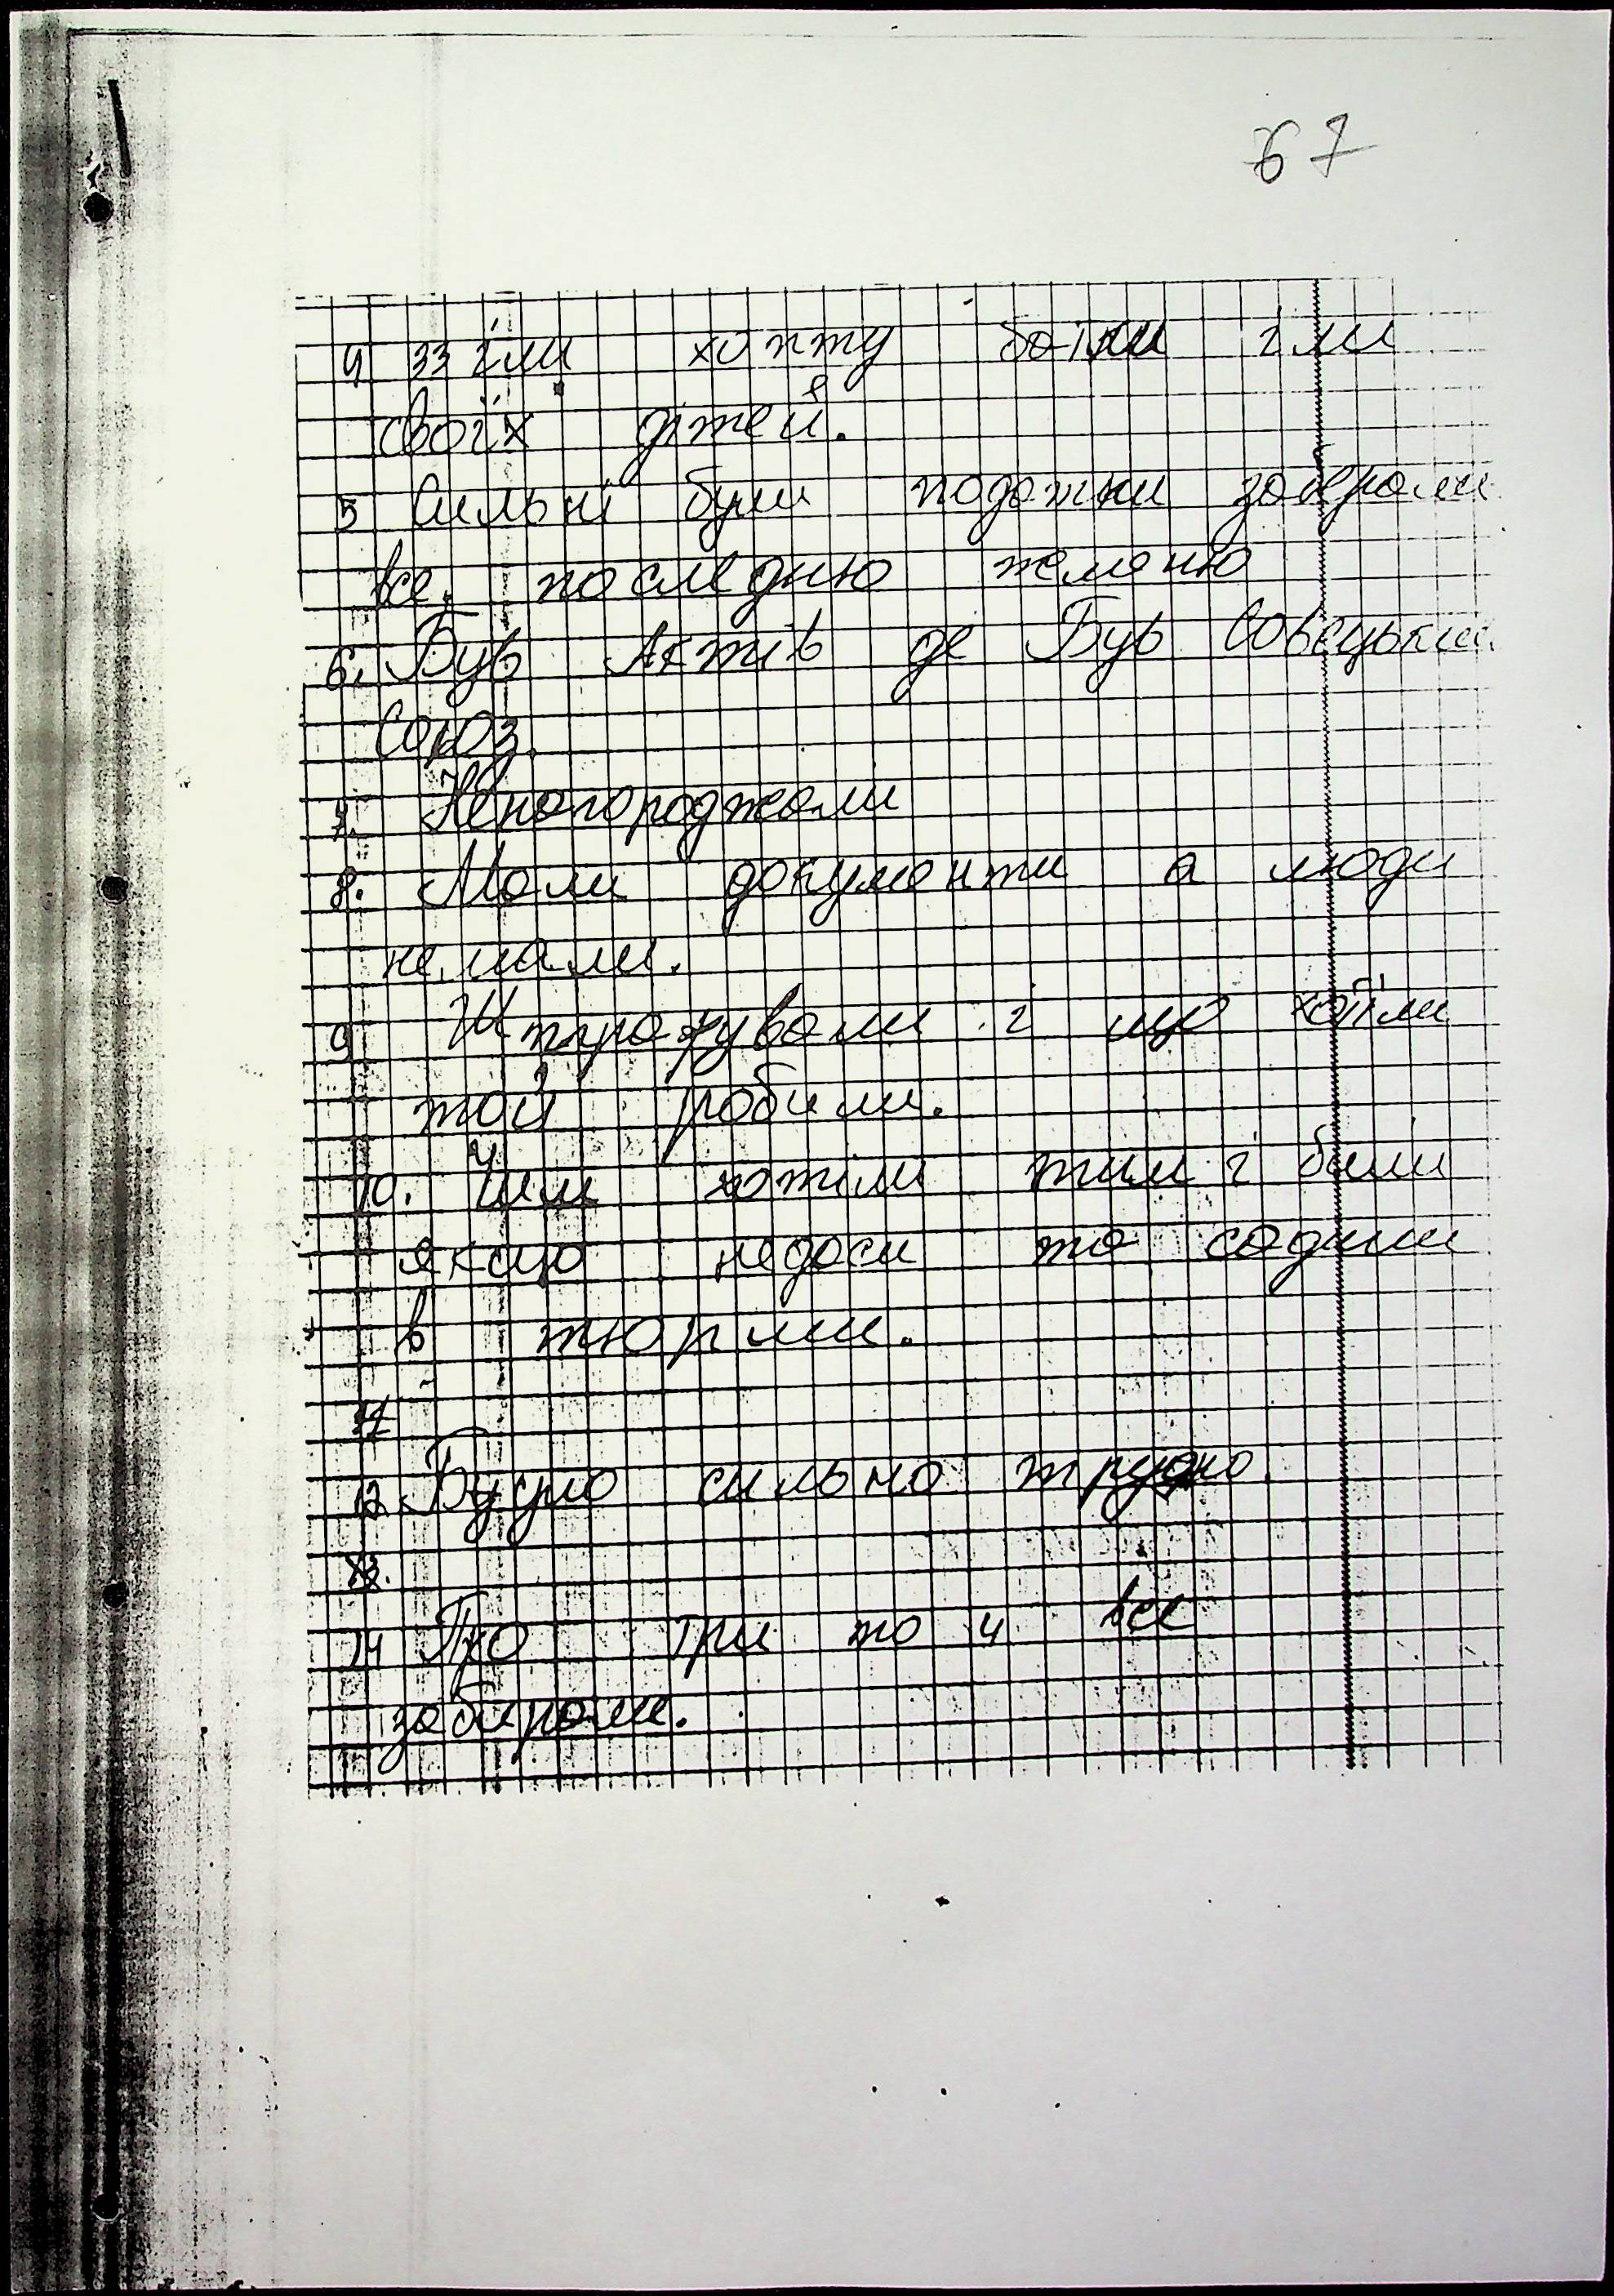 67
4 33 їли хопту батки їли
своїх дітей.
5 Сильні були податки заберали
все, последню жменю
6. Був Актів де Був Совецький
Союз.
7. Ненагороджали
8. Мали документи а люди
не мали.
9 Штрафували і що хотіли
той робили.
10. Чим хотіли тим і били
якщо недоси то садили
в тюрми.
11 -
12. Будло сильно трудно.
13.
14 Про три по 4 все
забирали.